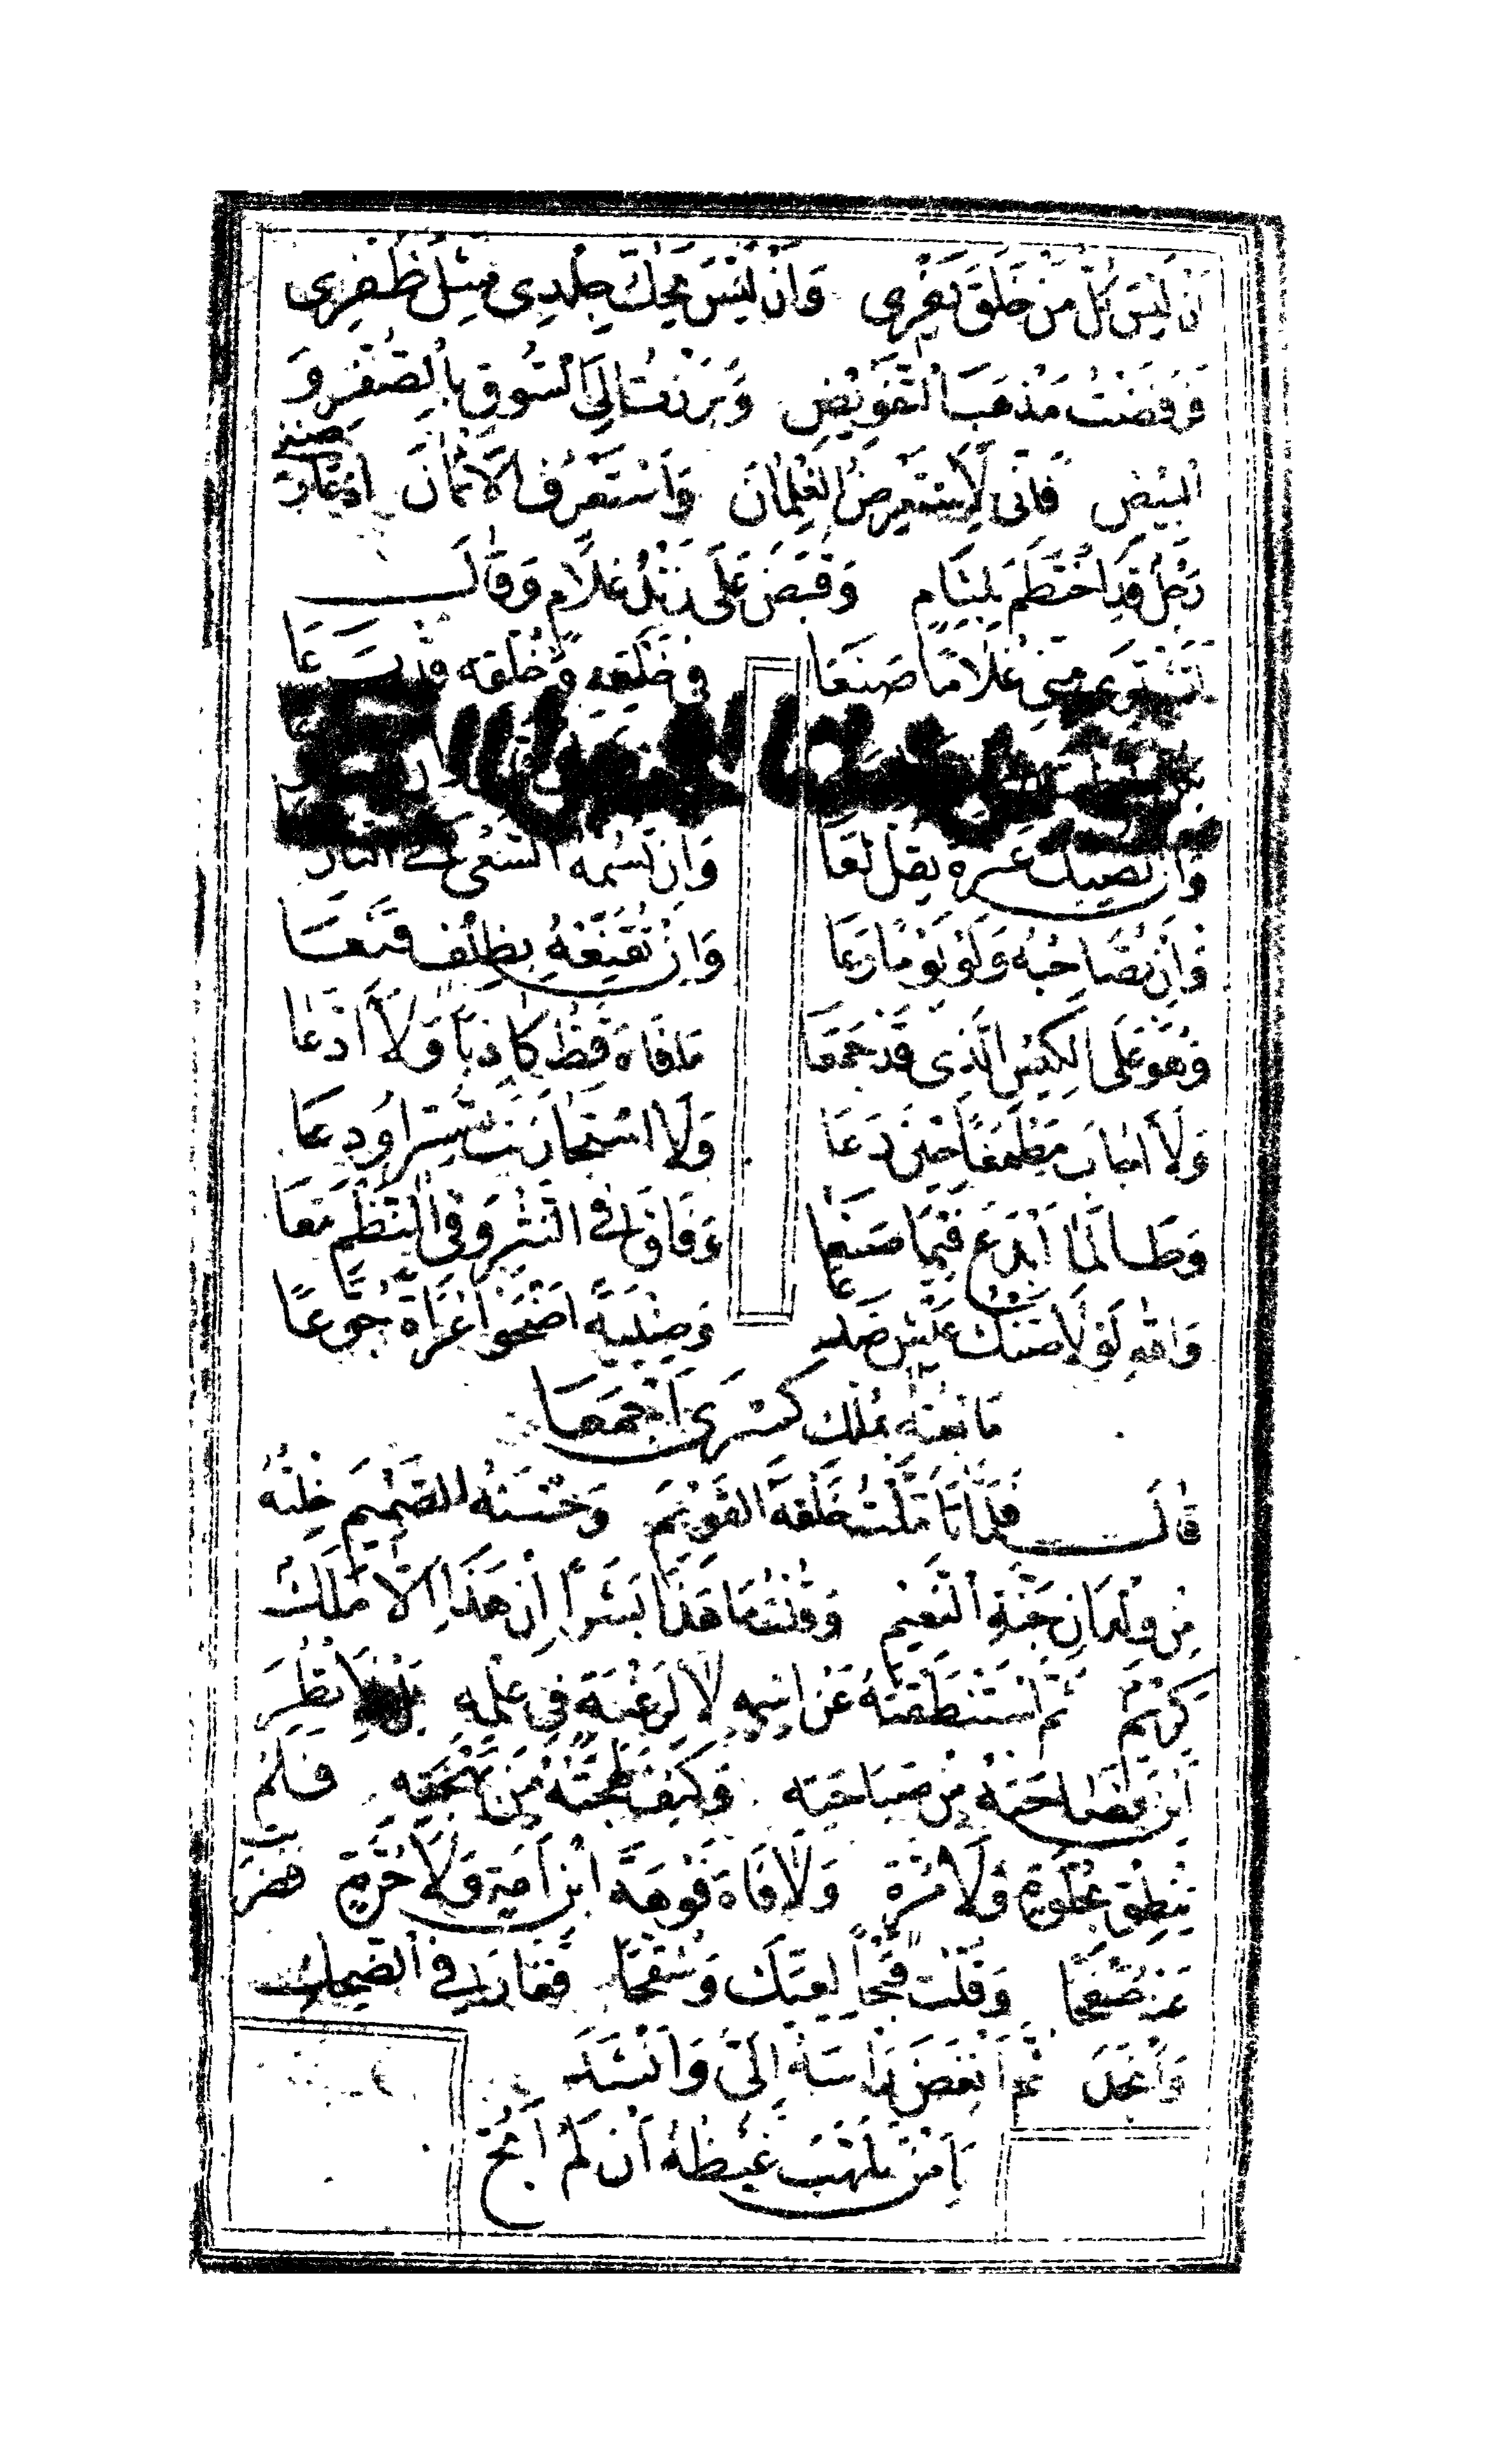 أَنْ لَيْسَ كُلُّ مَنْ خَلَقَ يَفْرِي وَأَنْ لَيْسَ يَحُكُّ جِلْدِي مِثْلُ ظُفْرِي
فَرَفَضْتُ مَذْهَبَ التَّفْوِيضِ وَبَرَزْتُ إِلَى السُّوقِ بِالصُّفْرِ وَ
الْبِيْضِ فَإِنِّي لَأَسْتَعْرِضُ الْغِلْمَانَ وَأَسْتَعْرِفُ الْأَثْمَانَ إِذْ عَارَضَنِي
رَجُلٌ قَدِ اخْتَطَمَ بِلِثَامٍ وَقَبَضَ عَلَى زَنْدِ غُلَامٍ وَقَالَ
يَشْتَرِي مِنِّي غُلَامًا صَنَعَا فِي خَلْقِهِ وَخُلْقِهِ قَدْ بَرَعَا
وَإِنْ تُصِبْكَ عَثْرَةٌ يَقُلْ لَعَا وَإِنْ تَسُمْهُ السَّعْيَ فِي النَّارِ
وَإِنْ تُصَاحِبْهُ وَلَوْ يَوْمًا رَعَا وَإِنْ تُقَنِّعْهُ بِظِلْفٍ قَنِعَا
وَهُوَ عَلَى الْكَيْسِ الَّذِي قَدْ جَمَعَا مَا فَاهَ قَطُّ كَاذِبًا وَلَا ادَّعَا
وَلَا أَجَابَ مَطْمَعًا حِيْنَ دَعَا وَلَا اسْتَجَازَ بَثَّ سِرٍّ أُودِعَا
وَطَالَمَا أَبْدَعَ فِيْمَا صَنَعَا وَفَاقَ فِي النَّثْرِ وَفِي النَّظْمِ مَعَا
وَاللهِ لَوْلَا ضَنْكُ عَيْشٍ صَدَعَا وَصِبْيَةٌ أَضْحَوْا عُرَاةً جُوَّعًا
مَا بِعْتُهُ بِمُلْكِ كِسْرَى أَجْمَعَا
قَالَ فَلَمَّا تَأَمَّلْتُ خَلْقَهُ الْقَوِيْمَ وَحُسْنَهُ الصَّمِيْمَ خِلْتُهُ
مِنْ وِلْدَانِ جَنَّةِ النَّعِيْمِ وَقُلْتُ مَا هَذَا بَشَرًا إِنْ هَذَا إِلَّا مَلَكٌ
كَرِيْمٌ ثُمَّ اسْتَنْطَقْتُهُ عَنِ اسْمِهِ لَا لِرَغْبَةٍ فِي عِلْمِهِ بَلْ لِأَنْظُرَ
أَيْنَ فَصَاحَتُهُ مِنْ صَبَاحَتِهِ وَكَيْفَ لَهْجَتُهُ مِنْ بَهْجَتِهِ فَلَمْ
يَنْطِقْ بِحُلْوَةٍ وَلَا مُرَّةٍ وَلَا فَاهَ فَوْهَةَ ابْنِ أَمَةٍ وَلَا حُرَّةٍ فَضَرَبْتُ
عَنْهُ صَفْحًا وَقُلْتُ قُبْحًا لِعِيِّكَ وَشُقْحًا فَغَارَ فِي الضَّحِكِ
وَأَنْجَدَ ثُمَّ أَنْغَضَ رَأْسَهُ إِلَيَّ وَأَنْشَدَ
يَا مَنْ تَلَهَّبَ غَيْظُهُ أَنْ لَمْ أَبُحْ